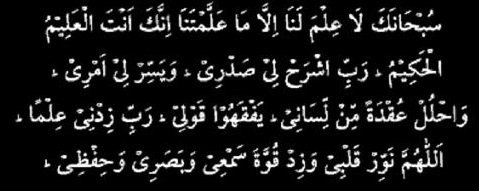 سُبْحَانَكَ لَا عِلْمَ لَنَا اِلَّا مَا عَلَّمْتَنَا اِنَّكَ اَنْتَ الْعَلِيْمُ
الْحَكِيْمُ ۔ رَبِّ اشْرَحْ لِىْ صَدْرِىْ ۔ وَيَسِّرْ لِىْ اَمْرِىْ ۔
وَاحْلُلْ عُقْدَةً مِّنْ لِّسَانِىْ ۔ يَفْقَهُوْا قَوْلِىْ ۔ رَبِّ زِدْنِىْ عِلْمًا ۔
اَللّٰهُمَّ نَوِّرْ قَلْبِىْ وَزِدْ قُوَّةَ سَمْعِىْ وَبَصَرِىْ وَحِفْظِىْ ۔